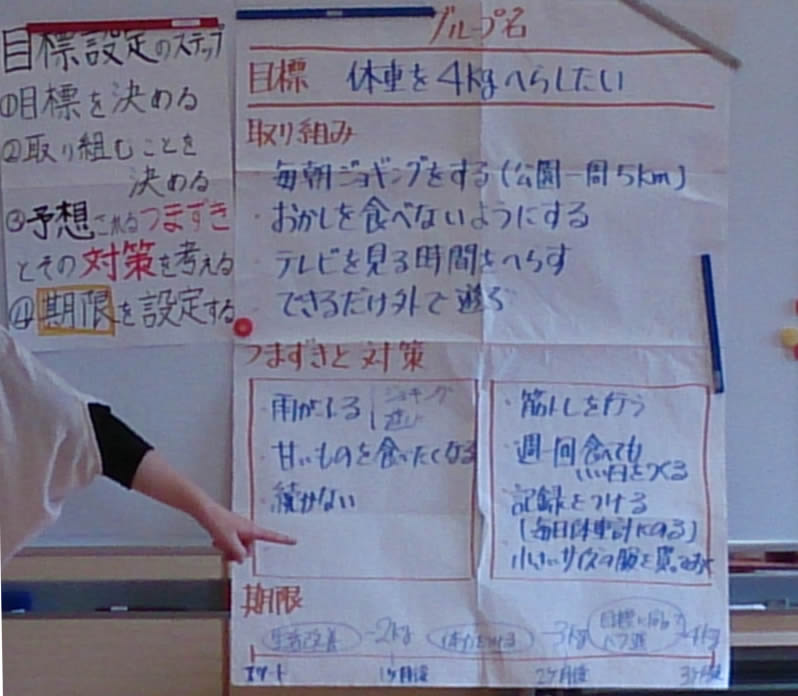 目標設定のステップ
①目標を決める
②取り組むことを
決める
③予想されるつまずき
とその対策を考える
④期限を設定する
グループ名
目標 体重を4kgへらしたい
取り組み
・毎朝ジョギングをする(公園一周5km)
・おかしを食べないようにする
・テレビを見る時間をへらす
・できるだけ外で遊ぶ
つまずきと対策
・雨がふる ジョギング
遊び
・甘いものを食べたくなる
・続かない
・筋トレを行う
・週一回食べても
いい日をつくる
・記録をつける
(毎日体重計にのる)
・小さいサイズの服を買っておく
期限
生活改善 -2kg 体力をつける -3kg 目標に向けて -4kg
スタート 1ヶ月後 2ヶ月後 3ヶ月後